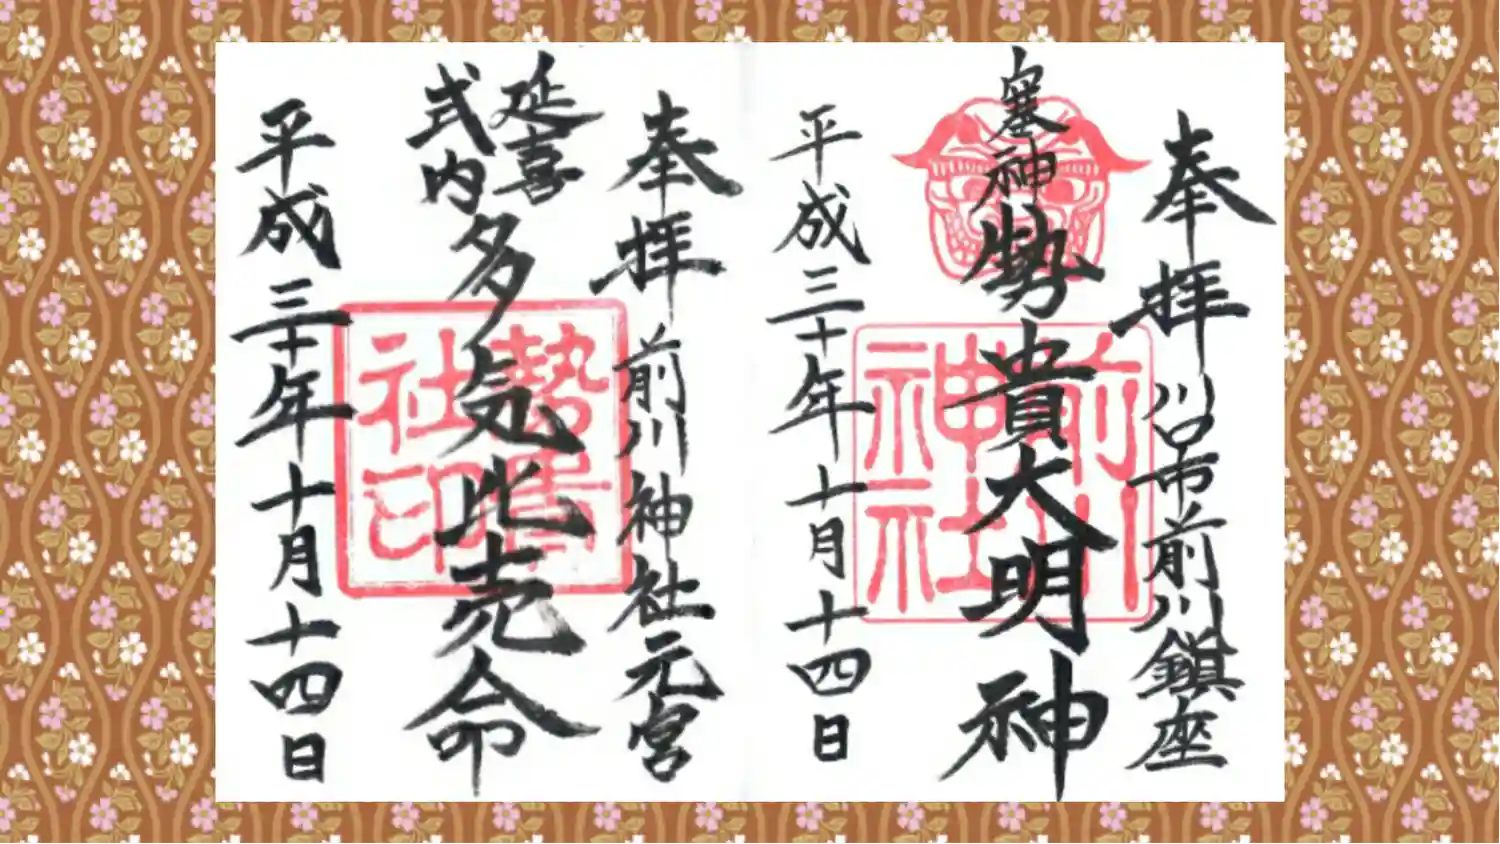 奉拝 川口市前川鎮座
塞神 勢貴大明神
前川神社
平成三十年十月十四日
奉拝 前川神社元宮
延喜
式内
多気比売命
勢貴社印
平成三十年十月十四日